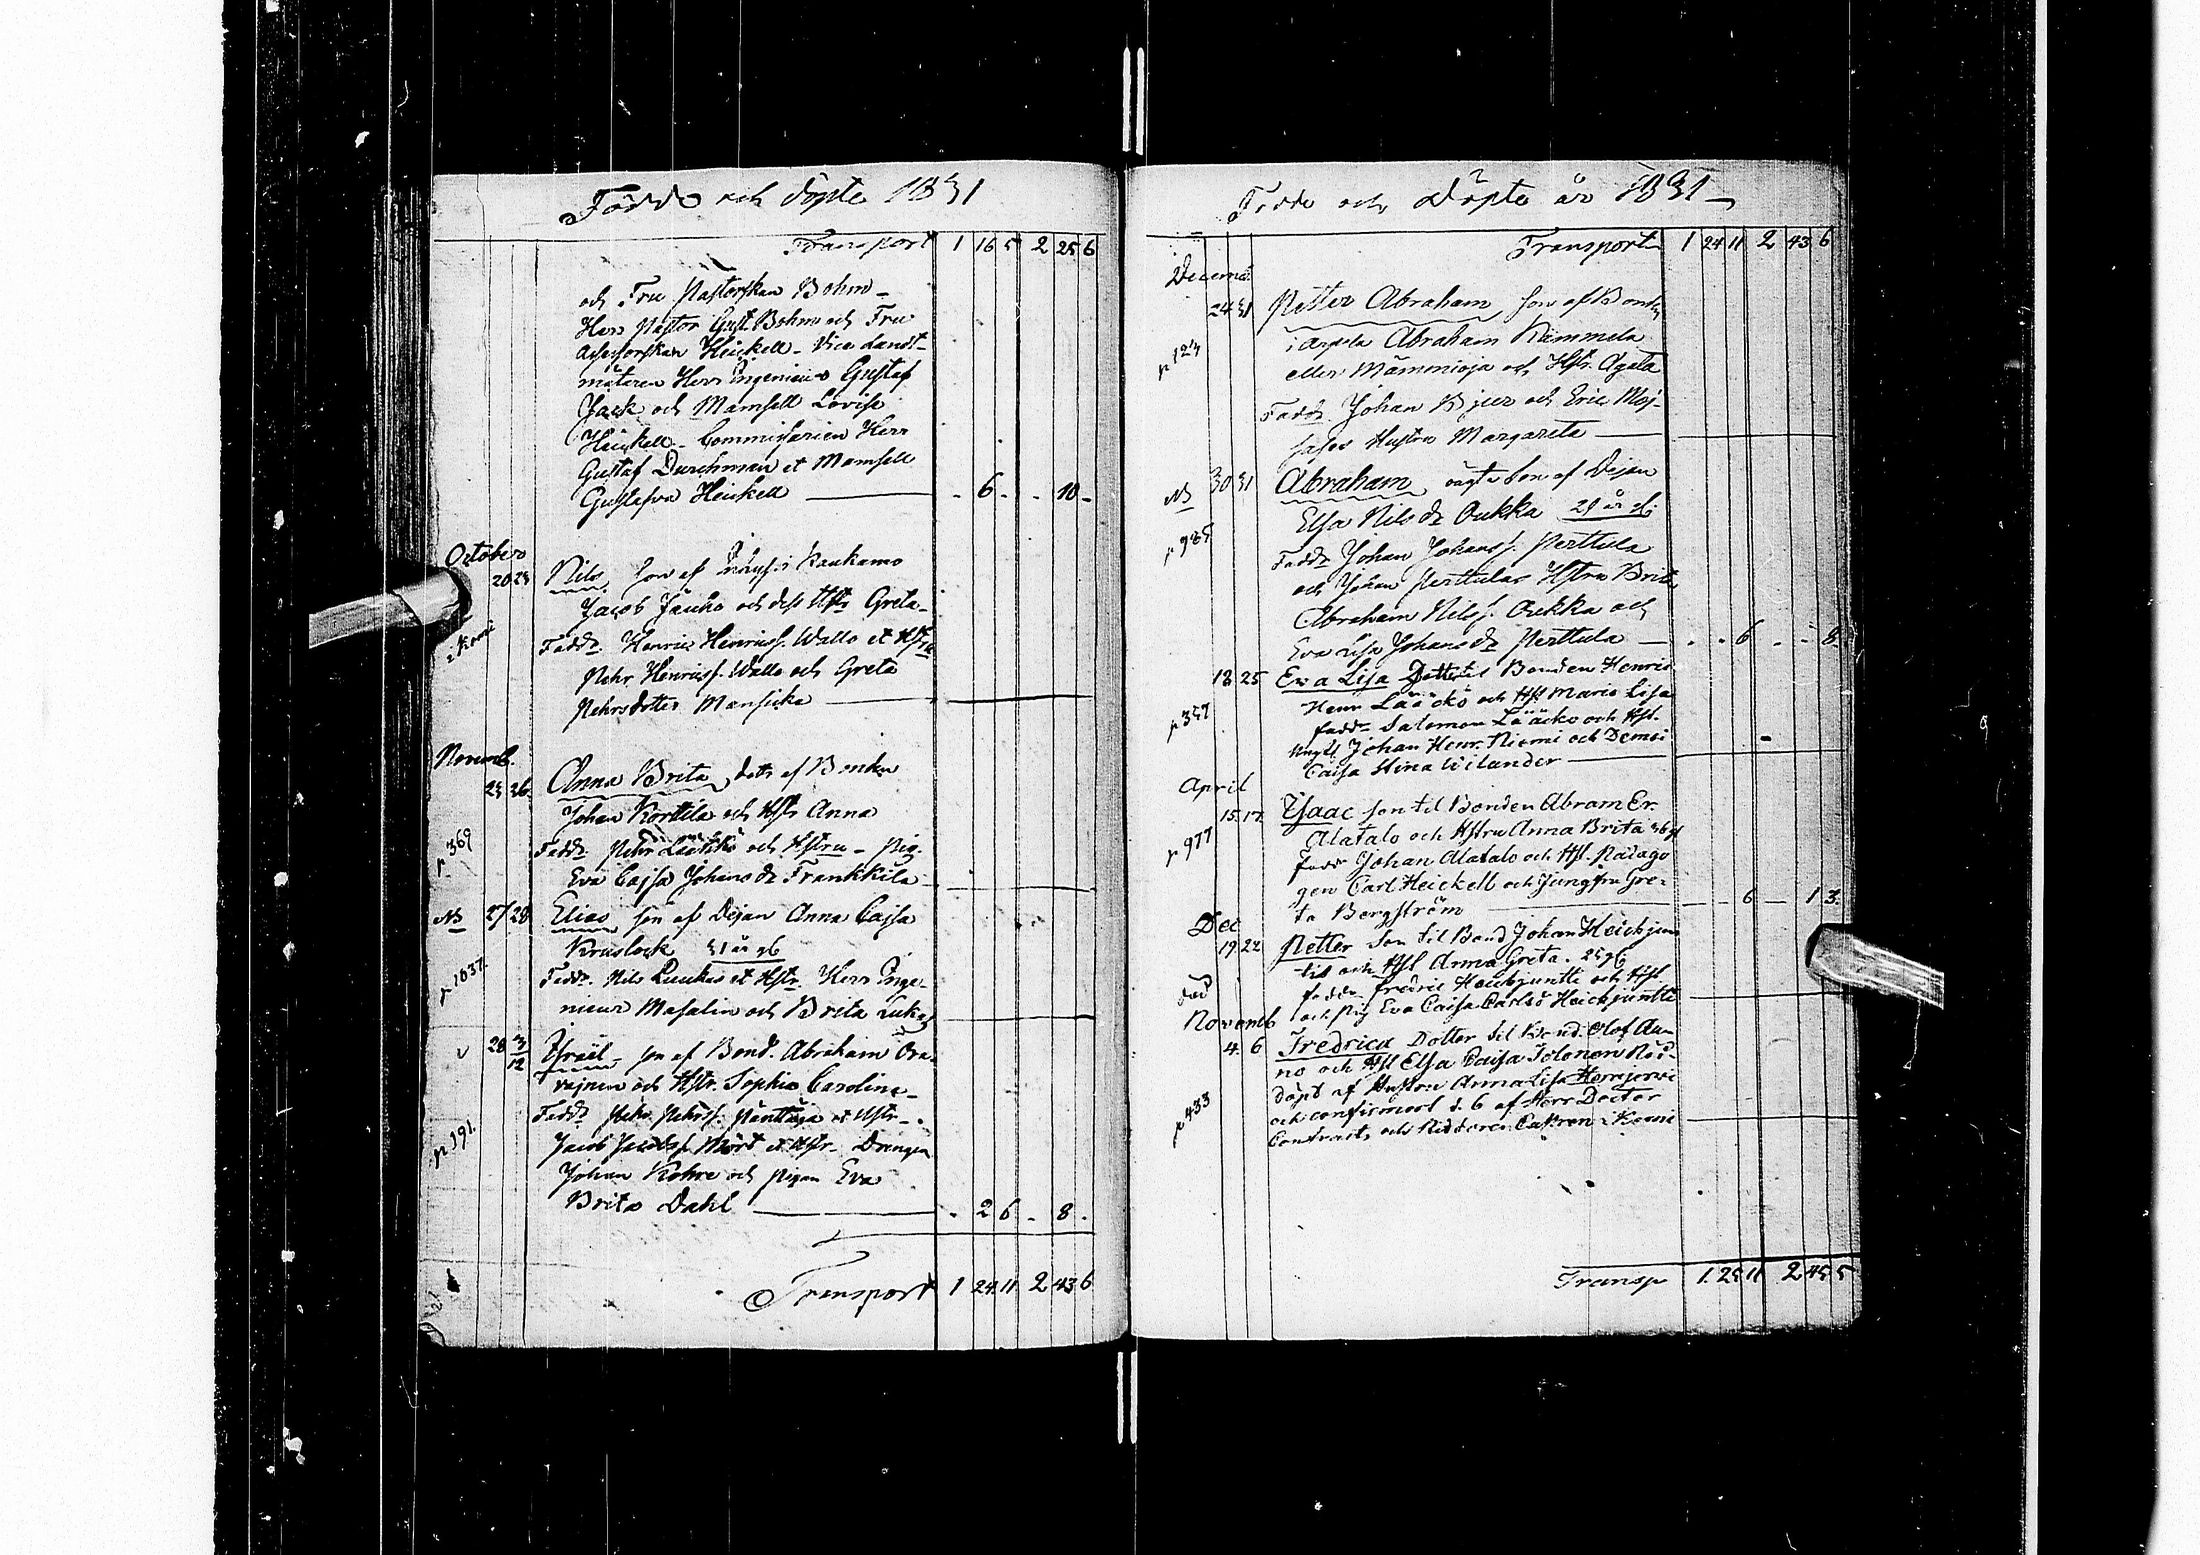 Födde och döpte 1831
Transport 1 16 5 2 25 6
och Fru Pastorskan Bohm -
Herr Pastor Gust. Bohm och Fru
Assessorskan Heickell - Vice Landt-
mätaren Herr Ingenieur Gustaf
Jack och Mamsell Lovisa
Heickell - Commissarien Herr
Gustaf Durchman et Mamsell
Gustafva Heickell - 6 - - 10 -
October
20 23 Nils son af Inhys. i Kaukamo
Jacob Jäuho och dess Hstr Greta -
Fadd. Henric Henricss. Wallo et Hstru
i Kemi
Pehr Henricss. Wallo och Greta
Pehrsdotter Mansicka
Novemb.
25 26 Anna Brita, dottr af Bonden
Johan Korttila och Hstr Anna
p 369
Fadd. Pehr Läätskö och Hstru - Pig.
Eva Cajsa Johansdr Frankkila
NB 27 28 Elias son af Pigan Anna Cajsa
Kruslock 31 år gl
p 1037
Fadd. Nils Luukas et Hstr. Herr Inge-
nieur Masalin och Brita Lukas
28 3/12 Israël - son af Bond. Abraham Ora-
vajnen och Hstr. Sophia Carolina -
p 191.
Fadd Pehr Pehrss. Panttaja et Hstr -
Jacob Jacobss. Mört et Hstr - Drengen
Johan Kohre och pigan Eva
Brita Dahl - 2 6 - 8 -
Transport 1 24 11 2 43 6
Födde och Döpte år 1831
Transport 1 24 11 2 43 6
Decemb.
24 31 Petter Abraham son af Bonden
i Arpela Abraham Kämmela
p 123
eller Mämmioja och Hstr. Agata
Fadd. Johan Bjur och Eric
Hustru Margareta
NB 30 31 Abraham oägta Son af Pigan
Elsa Nilsdr Oukka 29 år gl.
p 985
Fadd. Johan Johanss. Perttula
och Johan Perttulas Hstru Brita
Abraham Nilss. Oukka och
Eva Lisa Johansdr Perttula - - 6 - - 8
18 25 Eva Lisa Dotter til Bonden Henric
Henr Lääckö och Hst Maria Lisa
p 357
fadd. Salomon Lääcko och Hst.
Yngl. Johan Henr. Niemi och Demoi
Caisa Stina Wilander
April
15 17 Isaac son til Bonden Abram Er.
Alatalo och Hstru Anna Brita 36 gl
p 977
fadd. Johan Alatalo och Hst. Pädago
gen Carl Heickell och Jungfru Gre-
ta Bergström 6 - 1 3
Dec
19 22 Petter Son til Bond Johan Heickjun
tis och Hst Anna Greta. 25 gl
fadd. fredric Heickjuntti och Hst
och pig Eva Caisa Carlsd Heickjuntti
Novemb
4 6 Fredrica Dotter til Bond. Olof Au-
no och Hst Elsa Caisa Tolonen Nöd-
döpt af Hustru Anna Lisa
p 433
och confirmert d. 6 af Herr Doctor
Contracts och Riddaren Castren i Kemi
Transp 1 25 11 2 45 5